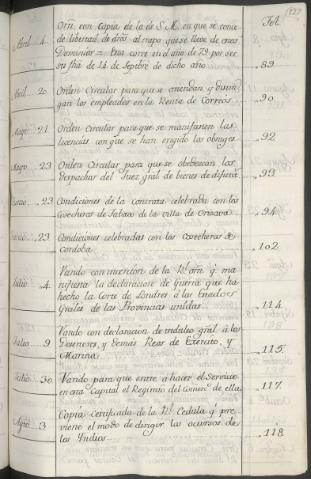 127
Fol.
Abril 4. Orñ. con copia de la de S. M. en que se conce-
de libertad de dros. al trapo que se lleve de estos
Dominios = Esta corre en el año de 79 por ser
su fha de 14 de Septbre de dicho año 89
Abril 20 Orden Circular para que se atiendan y distin-
gan los empleados en la Renta de Correos 90
Mayo 21 Orden Circular para que se manifiesten las
licencias con que se han erigido los obrages 92
Mayo 23 Orden Circular para que se obedezcan los
Despachos del Juez gral de bienes de difuntos 93
Junio 23 Condiciones de la contrata celebrada con los
Cosecheros de Tabaco de la villa de Orizava 94
Junio 23 Condiciones celebradas con los Cosecheros de
Cordoba 102
Julio 4. Vando con incercion de la Rl. orñ. q. ma-
nifiesta la declaracion de Guerra que ha
hecho la Corte de Londres á los Estados
Grales de las Provincias unidas 114
Julio 9 Vando con declaracion de indulto gral á los
Desertores, y demás Reos de Exército, y
Marina 115
Julio 30 Vando para que entre á hacer el Servicio
en esta Capital el Regimto del Comerc. de ella 117
Agto 3 Copia certificada de la Rl. Cedula q. pre-
viene el modo de dirigir los ocursos de
los Indios 118